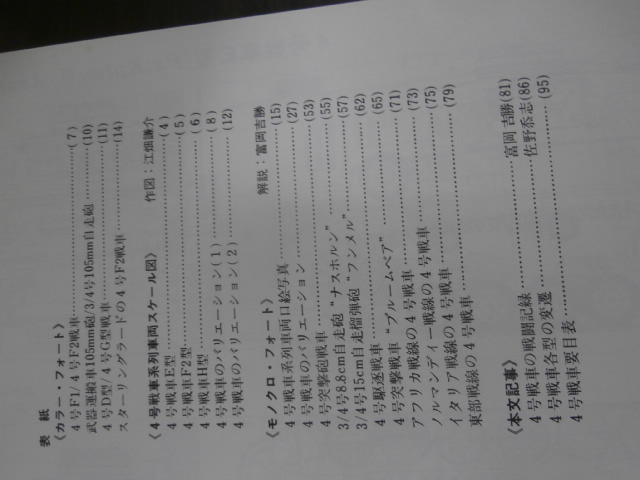 表 紙
《カラー・フォート》
4号F1/4号F2戦車……………(7)
武器運搬車105mm砲/3/4号105mm自走砲……(10)
4号D型/4号G型戦車……………(11)
スターリングラードの4号F2戦車……………(14)
《4号戦車系列車両スケール図》 作図：江畑謙介
4号戦車E型……………(4)
4号戦車F2型……………(5)
4号戦車H型……………(6)
4号戦車のバリエーション(1)……………(8)
4号戦車のバリエーション(2)……………(12)
《モノクロ・フォート》 解説：富岡吉勝
4号戦車系列車両口絵写真……………(15)
4号戦車のバリエーション……………(27)
4号突撃砲戦車……………(53)
3/4号8.8cm自走砲“ナスホルン”……………(55)
3/4号15cm自走榴弾砲“フンメル”……………(57)
4号駆逐戦車……………(62)
4号突撃戦車“ブルームベア”……………(65)
アフリカ戦線の4号戦車……………(71)
ノルマンディー戦線の4号戦車……………(73)
イタリア戦線の4号戦車……………(75)
東部戦線の4号戦車……………(79)
《本文記事》
4号戦車の戦闘記録……………富岡 吉勝(81)
4号戦車各型の変遷……………佐野恭志(86)
4号戦車要目表……………(95)